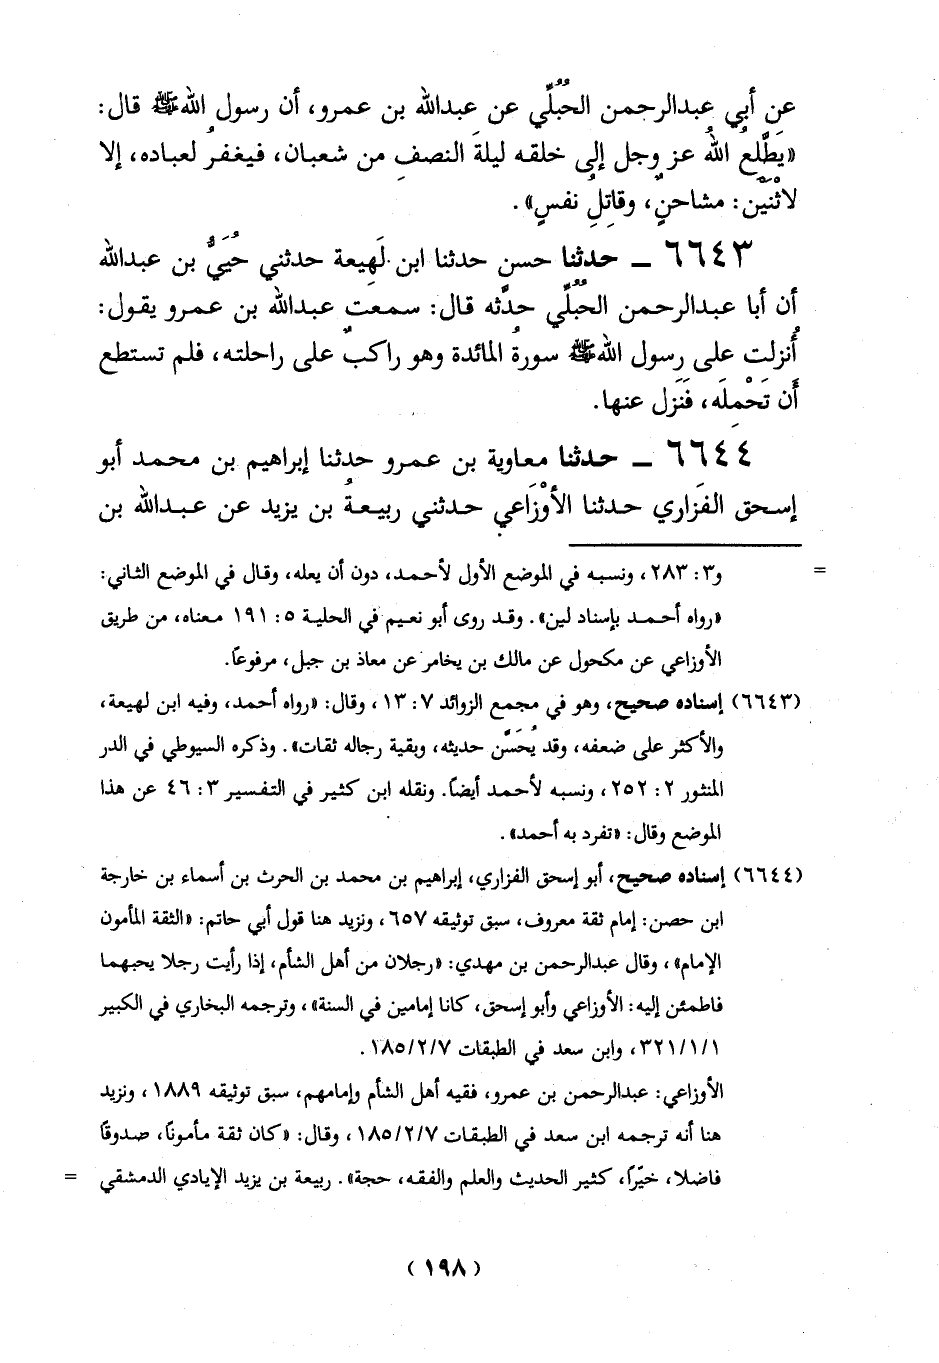 عن أبي عبدالرحمن الحُبُلّي عن عبدالله بن عمرو، أن رسول الله ﷺ قال:
«يَطَّلِعُ اللهُ عز وجل إلى خلقه ليلةَ النصفِ من شعبان، فيغفرُ لعباده، إلا
لاثْنَيْن: مشاحنٍ، وقاتلِ نفسٍ».
٦٦٤٣ ــ حدثنا حسن حدثنا ابن لَهِيعة حدثني حُيَيُّ بن عبدالله
أن أبا عبدالرحمن الحُبُلّي حدَّثه قال: سمعت عبدالله بن عمرو يقول:
أُنزلت على رسول الله ﷺ سورةُ المائدة وهو راكبٌ على راحلته، فلم تستطع
أَن تَحْمِلَه، فَنَزَل عنها.
٦٦٤٤ ــ حدثنا معاوية بن عمرو حدثنا إبراهيم بن محمد أبو
إسحق الفَزَاري حدثنا الأَوْزَاعي حدثني ربيعةُ بن يزيد عن عبدالله بن
= و٣: ٢٨٣، ونسبه في الموضع الأول لأحمد، دون أن يعله، وقال في الموضع الثاني:
«رواه أحمد بإسناد لين». وقد روى أبو نعيم في الحلية ٥: ١٩١ معناه، من طريق
الأوزاعي عن مكحول عن مالك بن يخامر عن معاذ بن جبل، مرفوعاً.
(٦٦٤٣) إسناده صحيح، وهو في مجمع الزوائد ٧: ١٣، وقال: «رواه أحمد، وفيه ابن لهيعة،
والأكثر على ضعفه، وقد يُحَسَّن حديثه، وبقية رجاله ثقات». وذكره السيوطي في الدر
المنثور ٢: ٢٥٢، ونسبه لأحمد أيضاً. ونقله ابن كثير في التفسير ٣: ٤٦ عن هذا
الموضع وقال: «تفرد به أحمد».
(٦٦٤٤) إسناده صحيح، أبو إسحق الفزاري، إبراهيم بن محمد بن الحرث بن أسماء بن خارجة
ابن حصن: إمام ثقة معروف، سبق توثيقه ٦٥٧، ونزيد هنا قول أبي حاتم: «الثقة المأمون
الإمام»، وقال عبدالرحمن بن مهدي: «رجلان من أهل الشأم، إذا رأيت رجلا يحبهما
فاطمئن إليه: الأوزاعي وأبو إسحق، كانا إمامين في السنة»، وترجمه البخاري في الكبير
٣٢١/١/١، وابن سعد في الطبقات ١٨٥/٢/٧.
الأوزاعي: عبدالرحمن بن عمرو، فقيه أهل الشأم وإمامهم، سبق توثيقه ١٨٨٩، ونزيد
هنا أنه ترجمه ابن سعد في الطبقات ١٨٥/٢/٧، وقال: «كان ثقة مأموناً، صدوقاً
فاضلا، خيّراً، كثير الحديث والعلم والفقه، حجة». ربيعة بن يزيد الإيادي الدمشقي =
(١٩٨)